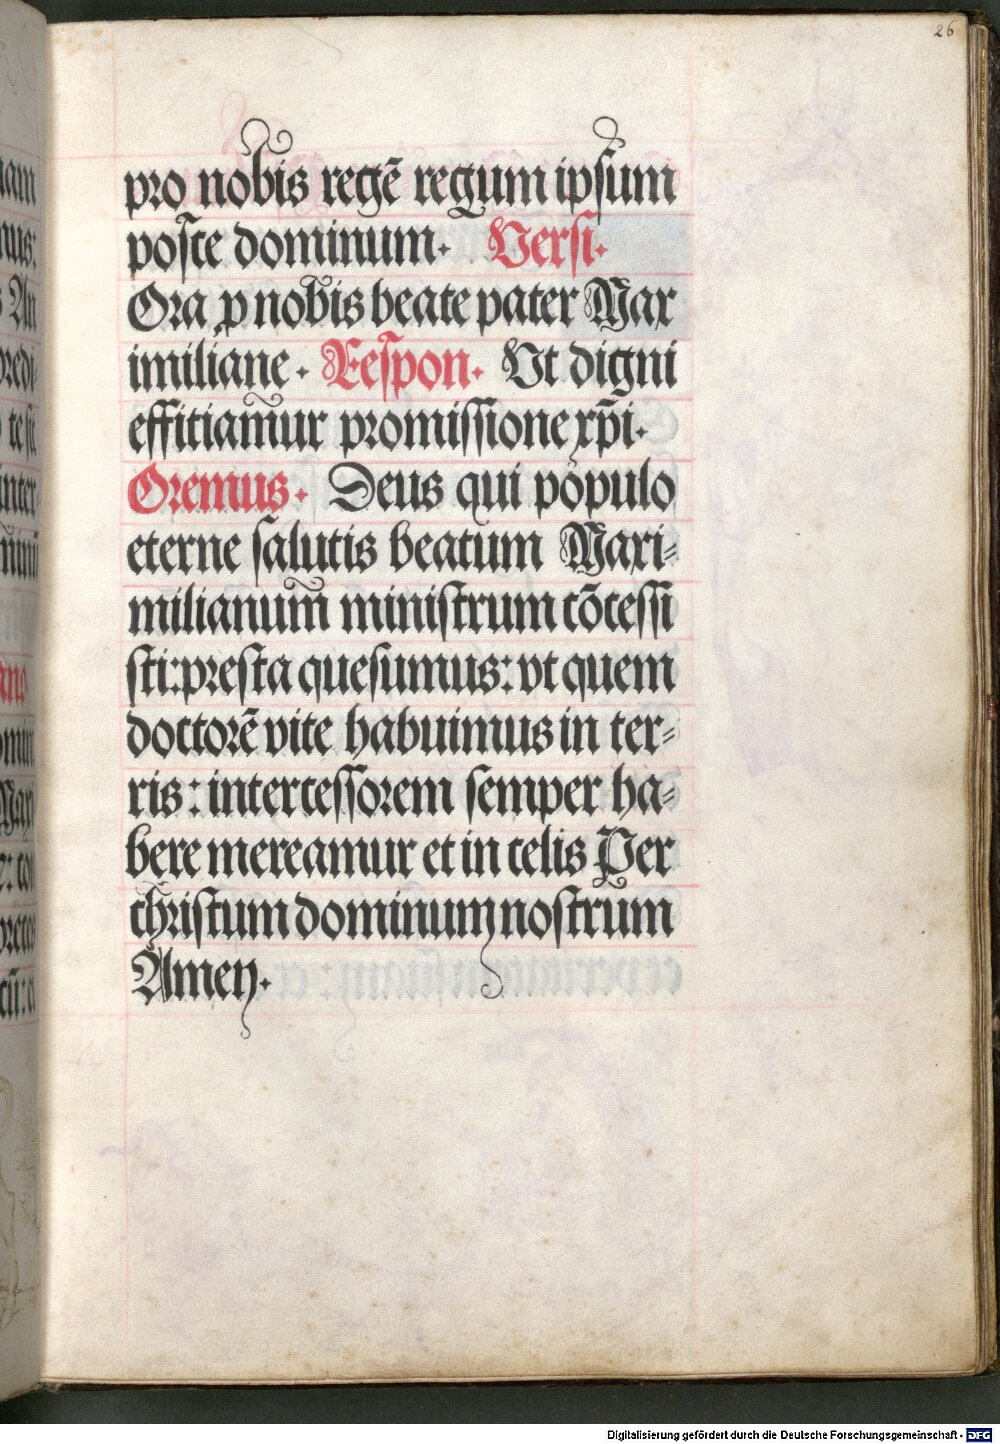 26
pro nobis regē regum ipsum
posce dominum. Versi.
Ora ꝓ nobis beate pater Max
imiliane. Respon. Vt digni
effitiamur promissione xp̄i.
Oremus. Deus qui populo
eterne salutis beatum Maxi=
milianum ministrum cōcessi
sti: presta quesumus: vt quem
doctorē vite habuimus in ter=
ris: intercessorem semper ha=
bere mereamur et in celis Per
christum dominum nostrum
Amen.
Digitalisierung gefördert durch die Deutsche Forschungsgemeinschaft - DFG